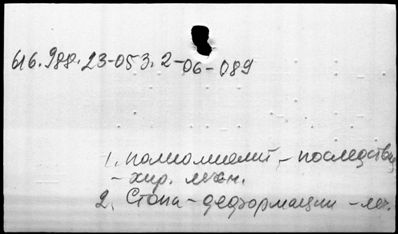 616.988.23-053.2-06-089
1. полиомиелит - последствия
- хир. лечен.
2. Стопа - деформации - леч.